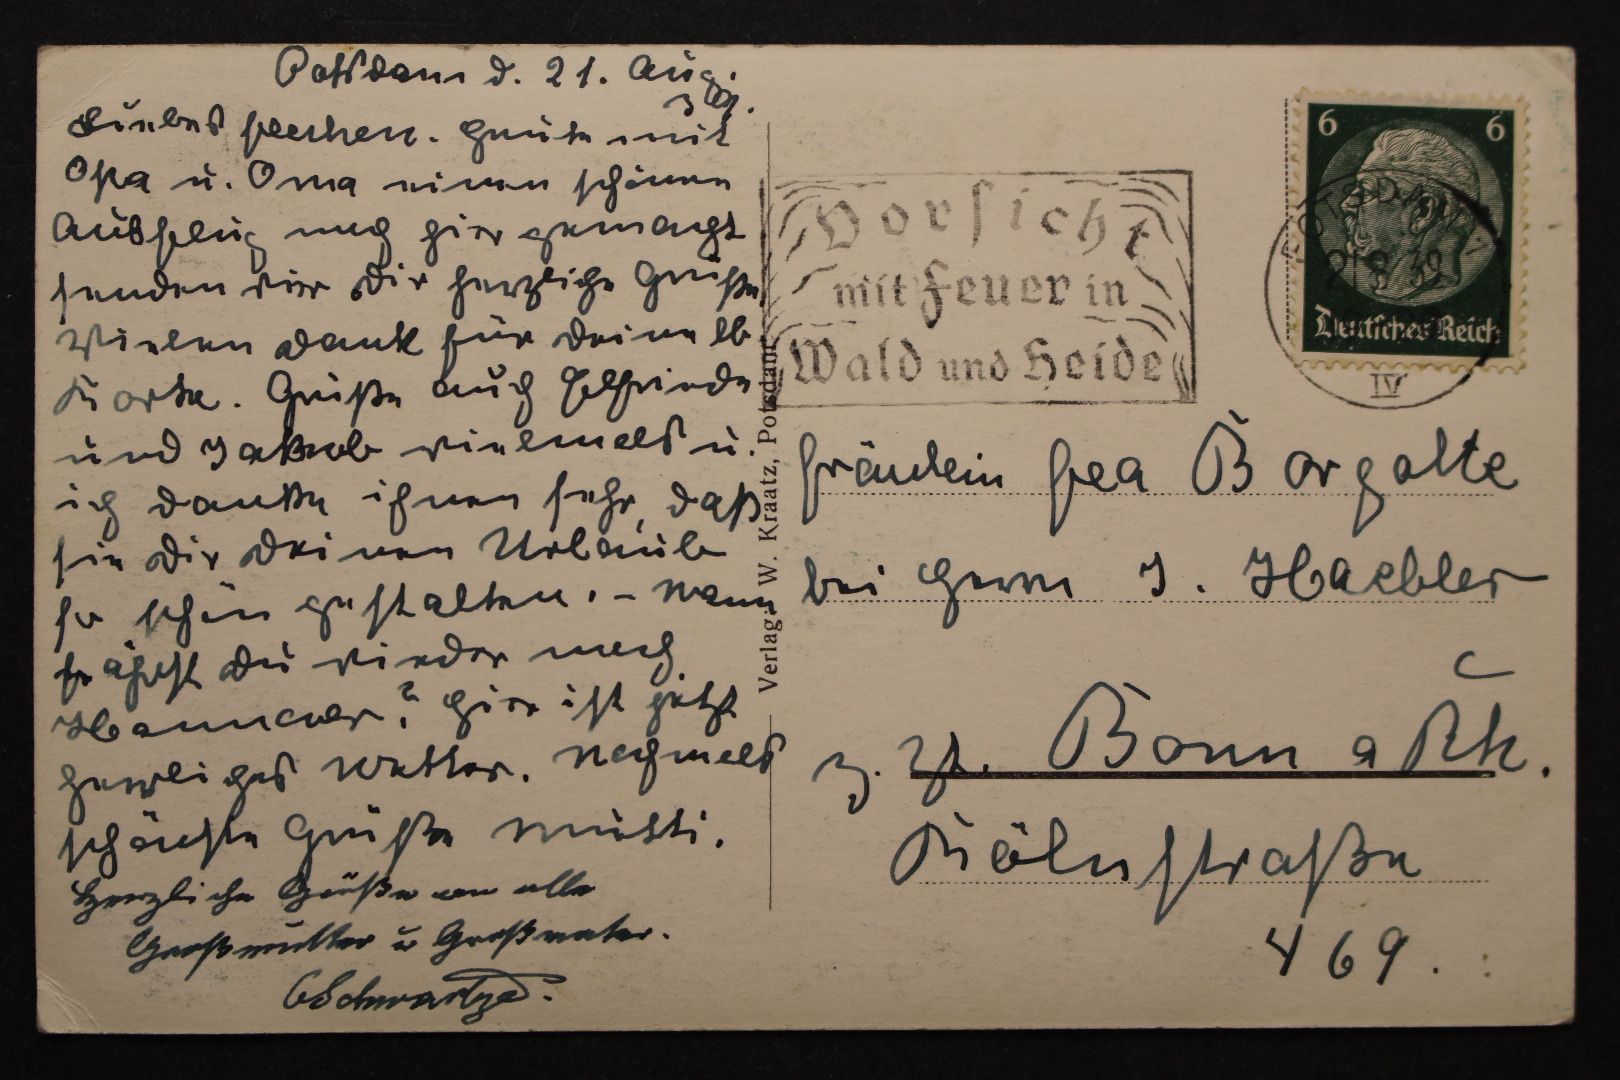 Potsdam d. 21. Aug.
39.
Liebes Feechen. Heute mit
Opa u. Oma einen schönen
Ausflug nach hier gemacht
senden wir Dir herzliche Grüße.
Vielen Dank für Deine lb
Karte. Grüße auch Elfriede
und Jakob vielmals u.
ich danke ihnen sehr, daß
sie Dir Deinen Urlaub
so schön gestalten. – Wann
fährst Du wieder nach
Hannover? Hier ist jetzt
herrliches Wetter. Nochmals
schönste Grüße Mutti.
Herzliche Grüße an alle
Großmutter u Großvater.
Schwartze.
Verlag W. Kraatz, Potsdam
Vorsicht
mit Feuer in
Wald und Heide
6 6
POTSDAM 1
21.8.39
Deutsches Reich
IV
Fräulein Fea Borgolte
bei Herrn J. Haebler
z. Zt. Bonn a Rh.
Kölnstraße
469.